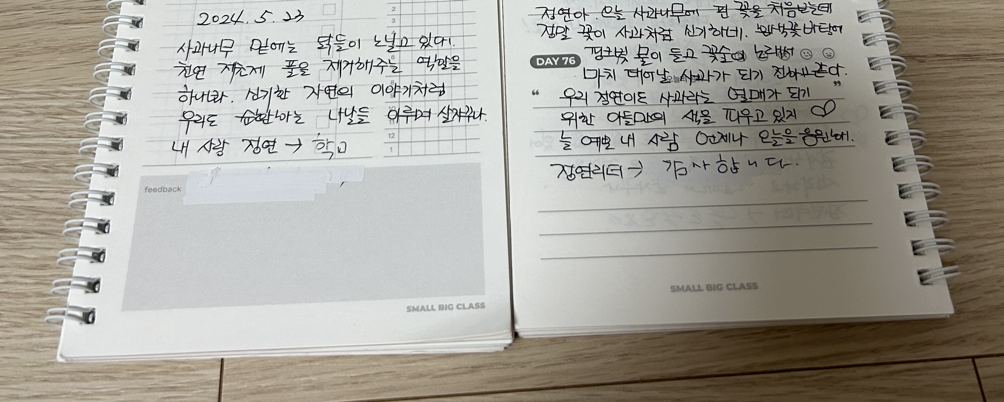 2024. 5. 23
사과나무 밑에는 닭들이 노닐고 있다.
천연 제초제 풀을 제거해주는 역할을
하나봐. 신기한 자연의 이야기처럼
우리도 하는 나날들 이루며 살자꾸나.
내 사랑 정연 → 학
feedback
SMALL BIG CLASS
정연아. 오늘 사과나무에 핀 꽃을 처음봤는데
정말 꽃이 사과처럼 신기하네. 꽃바탕에
DAY 76
핑크빛 물이 들고 꽃술이 노래서
마치 태어날 사과가 되기 전 같다.
"우리 정연이도 사과라는 열매가 되기"
위한 아름다의 색을 띠우고 있지
늘 예쁜 내 사랑 언제나 오늘을 응원해.
정연리더 → 감사합니다.
SMALL BIG CLASS